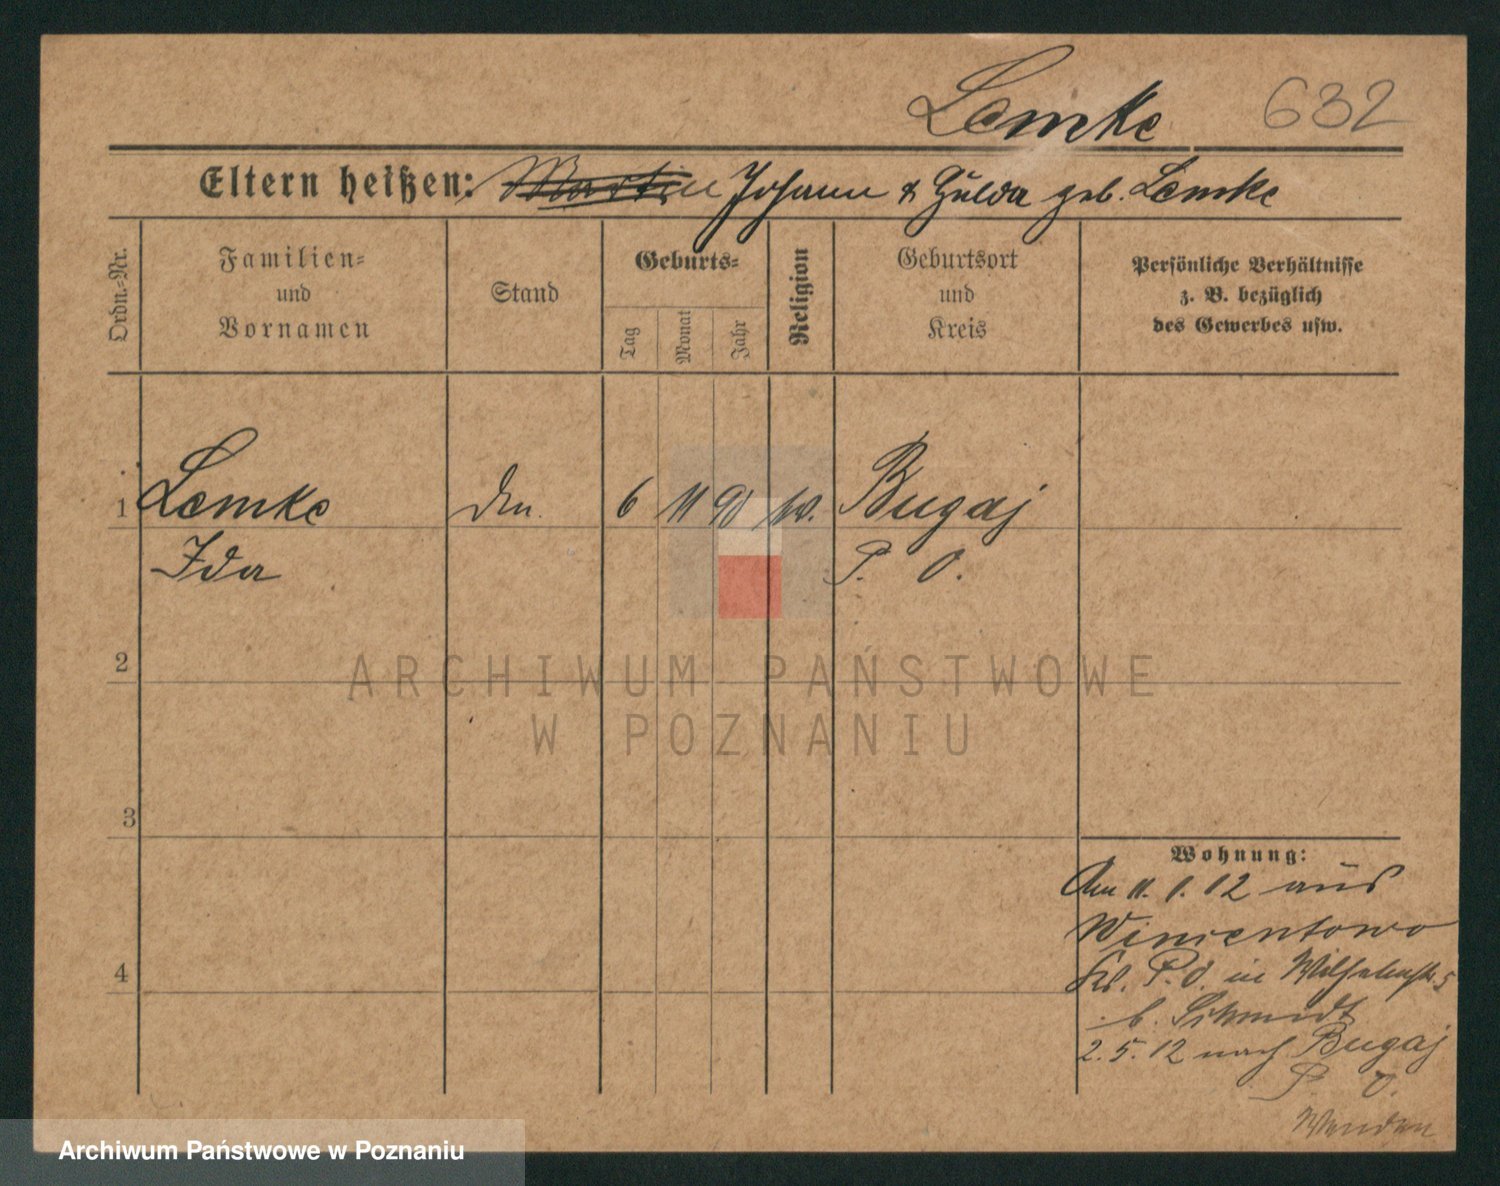 Lemke 632
Eltern heißen: Johann & Hulda geb. Lemke
Ordn.-Nr.
Familien-
und
Vornamen
Stand
Geburts-
Tag
Monat
Jahr
Religion
Geburtsort
und
Kreis
Persönliche Verhältnisse
z. B. bezüglich
des Gewerbes usw.
1 Lemke 6 11 90 ev. Bugaj
Ida P. O.
2
3
4
Wohnung:
Am 11. 1. 12 aus
P. O. in Wilhelmstr. 5
b. Schmidt
2. 5. 12 nach Bugaj
P. O.
Wenden
ARCHIWUM PAŃSTWOWE
W POZNANIU
Archiwum Państwowe w Poznaniu